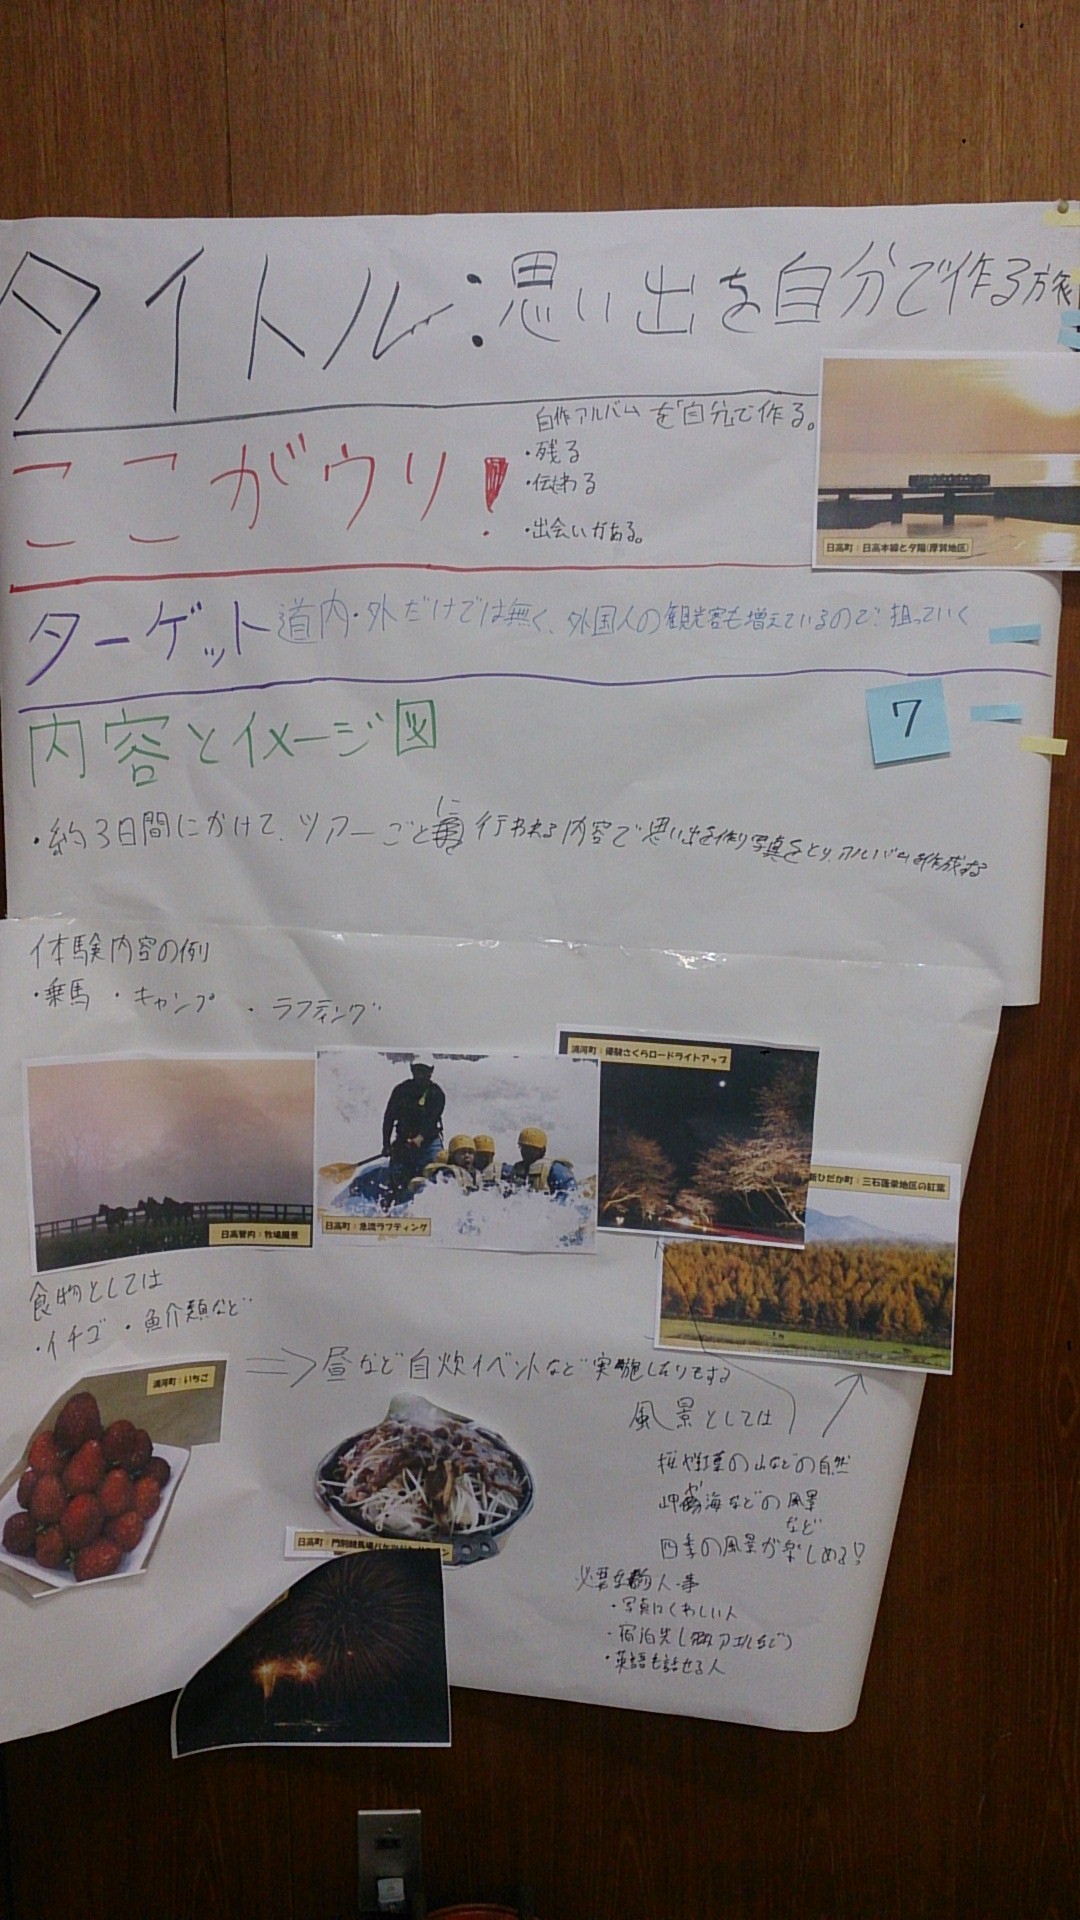 タイトル:思い出を自分で作る旅
ここがウリ!
自作アルバムを「自分」で作る。
・残る
・伝わる
・出会いがある。
日高町:日高本線と夕陽(厚賀地区)
ターゲット 道内・外だけでは無く、外国人の観光客も増えているので狙っていく
7
内容とイメージ図
・約3日間にかけて、ツアーごとに行われる内容で思い出を作り写真をとり、アルバムを作成する
体験内容の例
・乗馬 ・キャンプ ・ラフティング
浦河町:優駿さくらロードライトアップ
新ひだか町:三石蓬栄地区の紅葉
日高管内:牧場風景
日高町:急流ラフティング
食物としては
・イチゴ ・魚介類など
⇒昼など自炊イベントなど実施したりする
浦河町:いちご
日高町:門別競馬場
風景としては
桜や紅葉の山などの自然
岬や海などの風景
など
四季の風景が楽しめる!?
必要な物人事
・写真にくわしい人
・宿泊先
・英語も話せる人